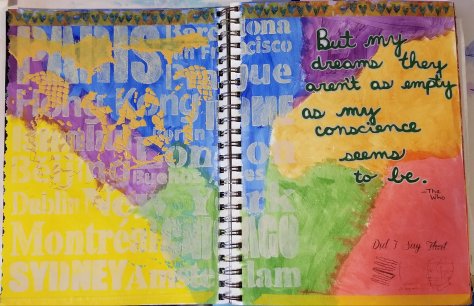 PARIS
Barcelona
San Francisco
Prague
Hong Kong
ROME
Istanbul
London
Beijing
Buenos Aires
Dublin New York
Montréal CHICAGO
SYDNEY Amsterdam
But my
dreams they
aren't as empty
as my
conscience
seems
to be.
-The
Who
Did I Say That